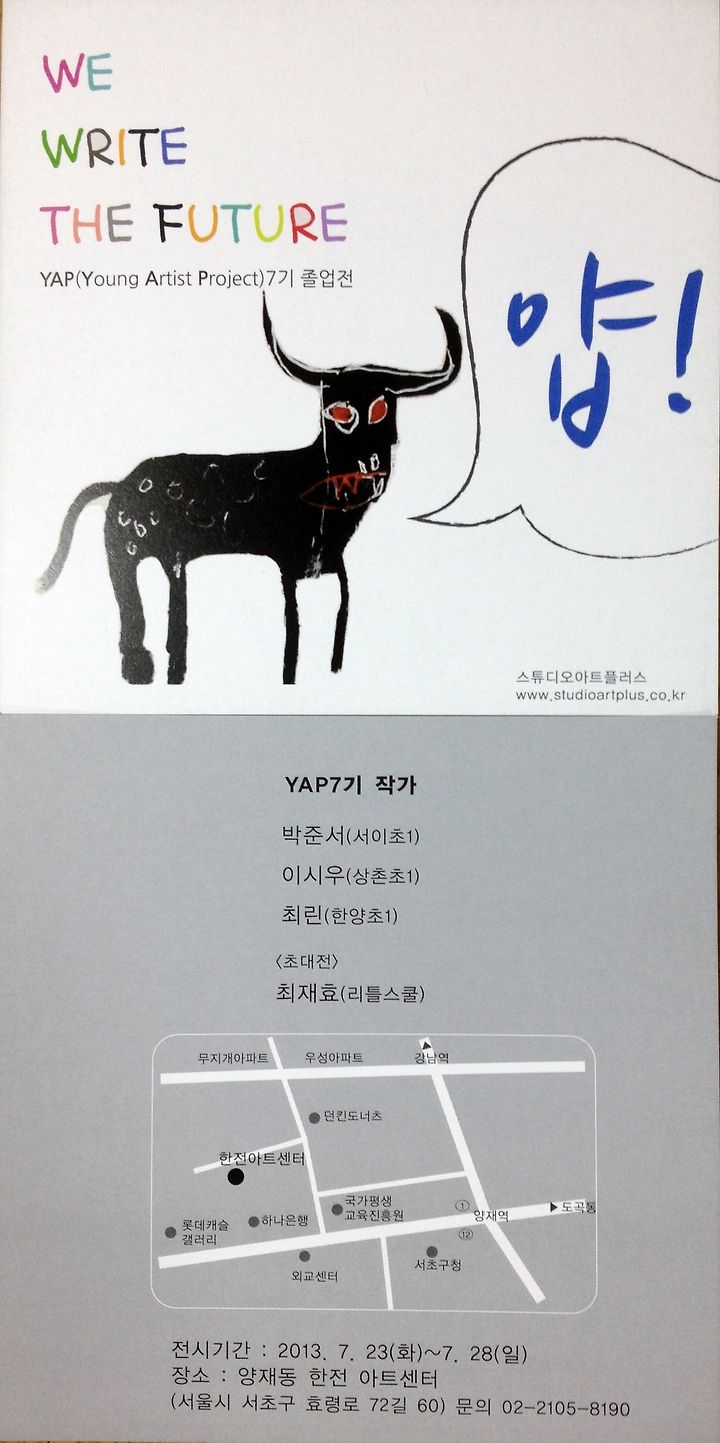 WE
WRITE
THE FUTURE
YAP(Young Artist Project)7기 졸업전
얍!
스튜디오아트플러스
www.studioartplus.co.kr
YAP7기 작가
박준서(서이초1)
이시우(상촌초1)
최린(한양초1)
<초대전>
최재효(리틀스쿨)
무지개아파트
우성아파트
강남역
던킨도너츠
한전아트센터
국가평생
교육진흥원
롯데캐슬
갤러리
하나은행
1
양재역
도곡동
12
외교센터
서초구청
전시기간 : 2013. 7. 23(화)~7. 28(일)
장소 : 양재동 한전 아트센터
(서울시 서초구 효령로 72길 60) 문의 02-2105-8190